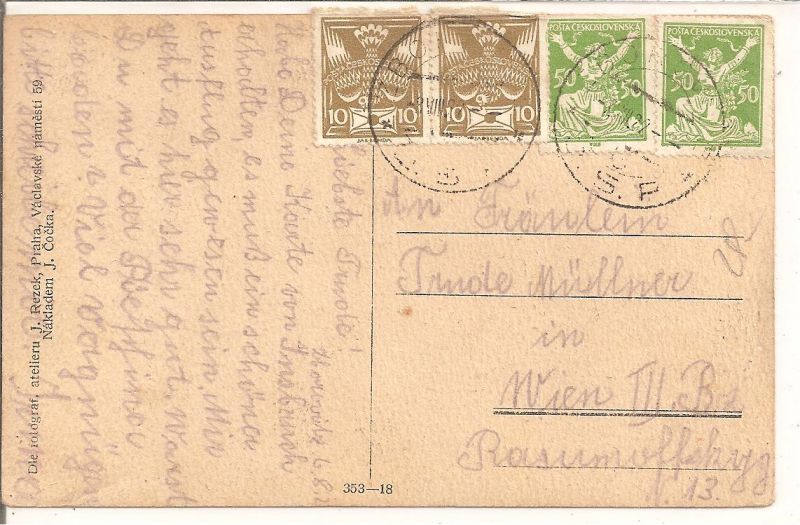 POŠTA ČESKOSLOVENSKÁ
POŠTA ČESKOSLOVENSKÁ
10 10
10 10
50 50
50 50
Liebste Trude!
Habe Deine Karte von Innsbruck
erhalten es muß ein schöner
Ausflug gewesen sein. Mir
geht es hier sehr gut. Warst
Du mit der
baden? Viel Vergnügen
An Fräulein
Trude Müllner
in
Wien III. Bz.
Rasumoffskyg.
N. 13.
Dle fotograf. atelieru J. Rezek, Praha, Václavské náměstí 59.
Nákladem J. Čočka.
353—18